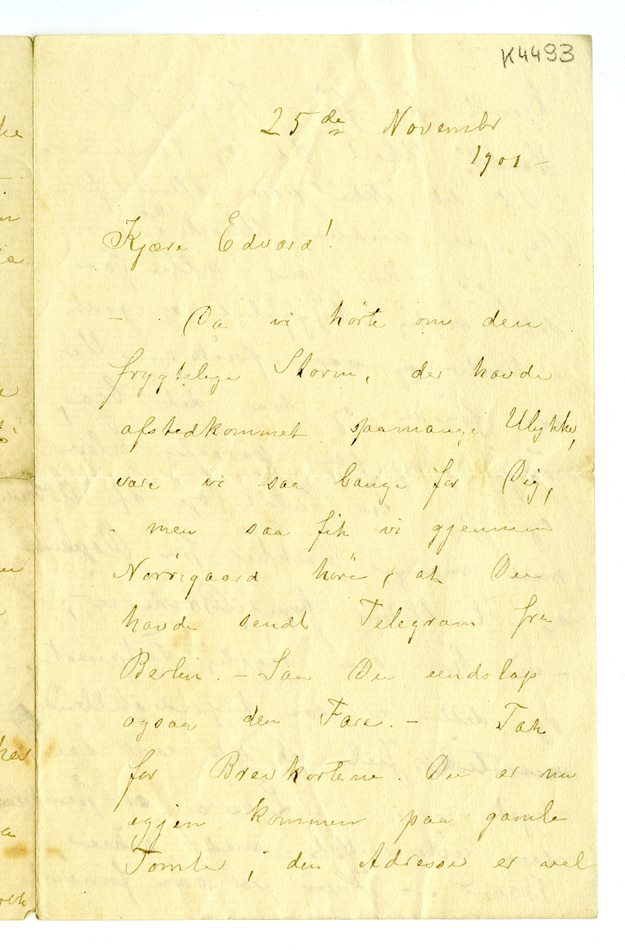 K4493
25 de November
1901 –
Kjære Edvard!
– Da vi hörte om den
frygtelige Storm, der havde
afstedkommet saamange Ulykker,
vare vi saa bange for Dig,
– men saa fik vi gjennem
Norrigaard höre, at Du
havde sendt Telegram fra
Berlin. – Saa Du undslap
ogsaa den Fare. – Tak
for Brevkortene. Du er nu
igjen kommen paa gamle
Tomter; den Adresse er vel